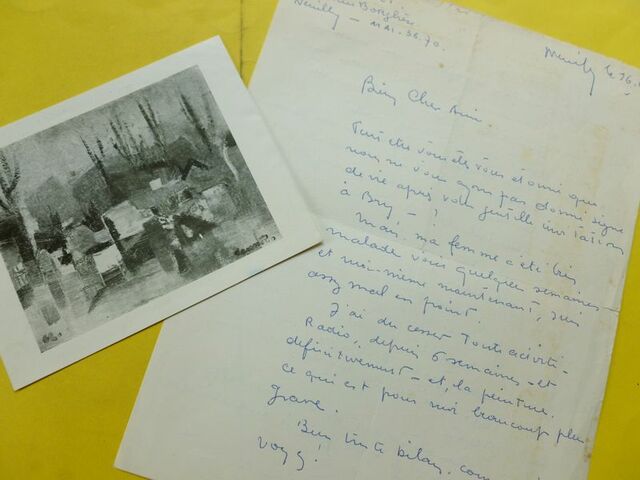 Neuilly - MAI. 36.70.
Neuilly le 26
Bien Cher Ami.
Peut être vous êtes vous étonné que
nous ne vous ayons pas donné signe
de vie après votre gentille invitation
à Bry - !
Mais, ma femme a été bien
malade voici quelques semaines -
et moi-même maintenant, suis
assez mal en point.
J'ai du cesser toute activité -
Radio, depuis 6 semaines - et
définitivement - et, la peinture.
ce qui est pour moi beaucoup plus
grave.
Bien triste bilan, comme
voyez!